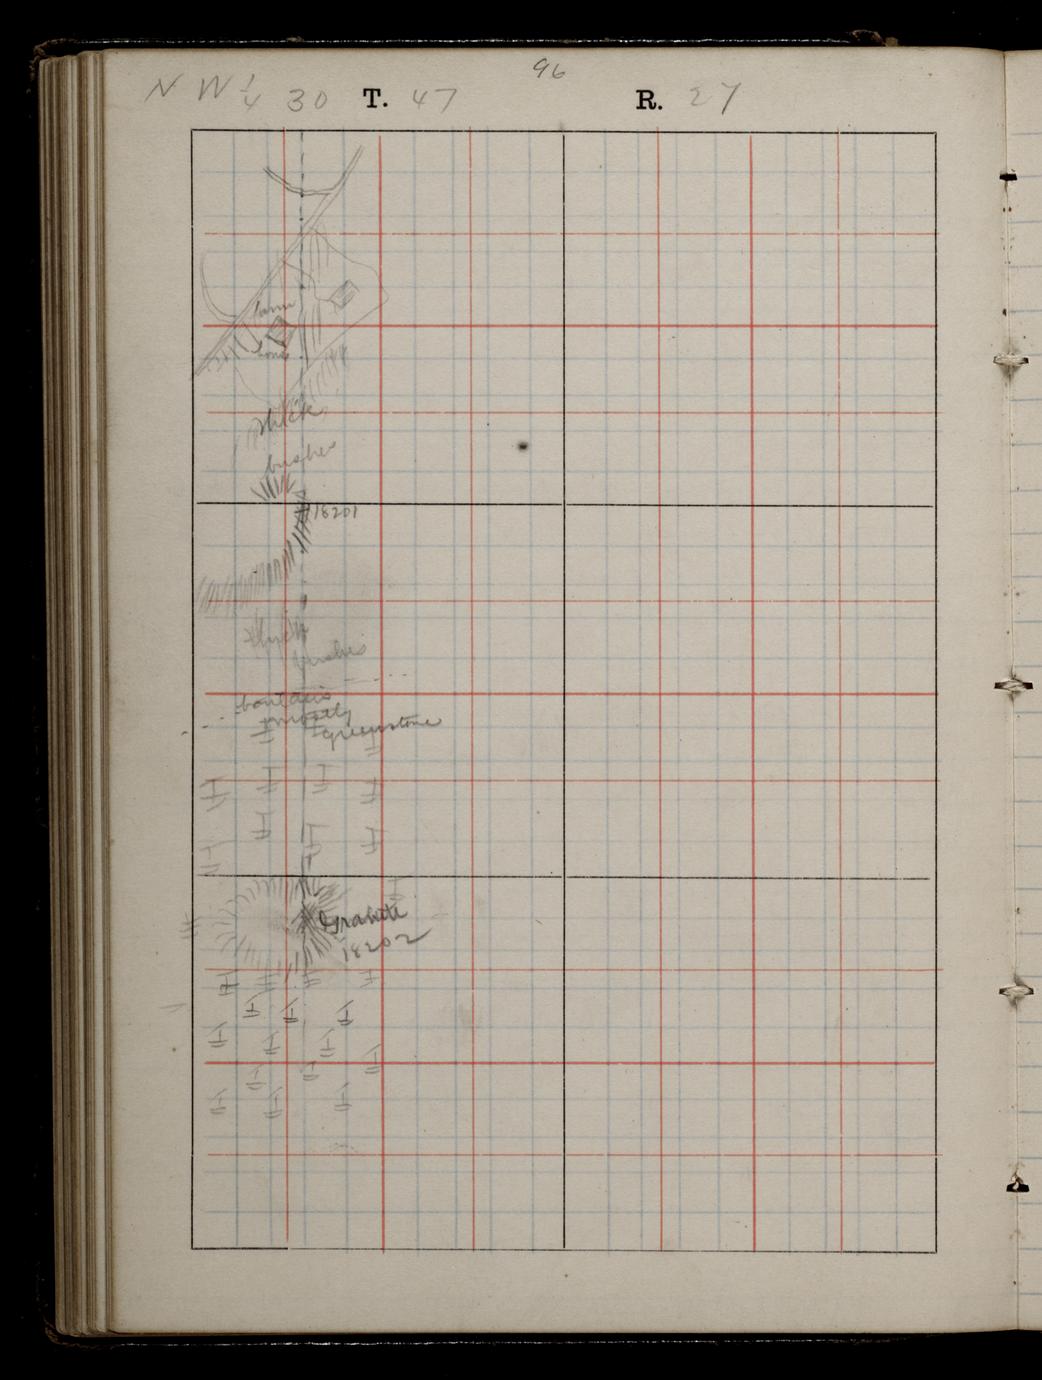 96
N W 1/4 30 T. 47 R. 27
farm
house
thick
bushes
18201
thick
bushes
boulders
mostly
greenstone
Granite
18202